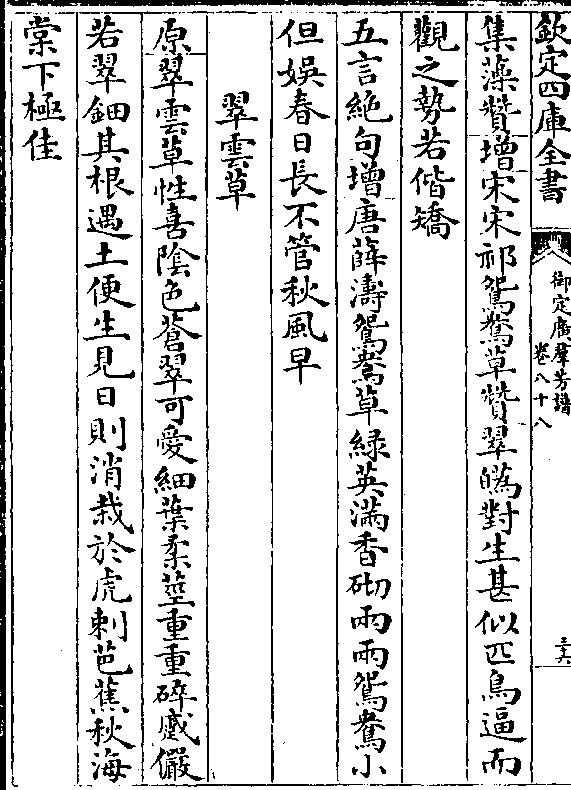 欽定四庫全書
御定廣羣芳譜
卷八十八
三六
集藻贊增宋宋祁鴛鴦草贊翠花對生甚似匹鳥逼而
觀之勢若偕矯
五言絶句增唐薛濤鴛鴦草綠英滿香砌兩兩鴛鴦小
但娛春日長不管秋風早
翠雲草
原翠雲草性喜陰色蒼翠可愛細葉柔莖重重碎蹙儼
若翠鈿其根遇土便生見日則消栽於虎刺芭蕉秋海
棠下極佳